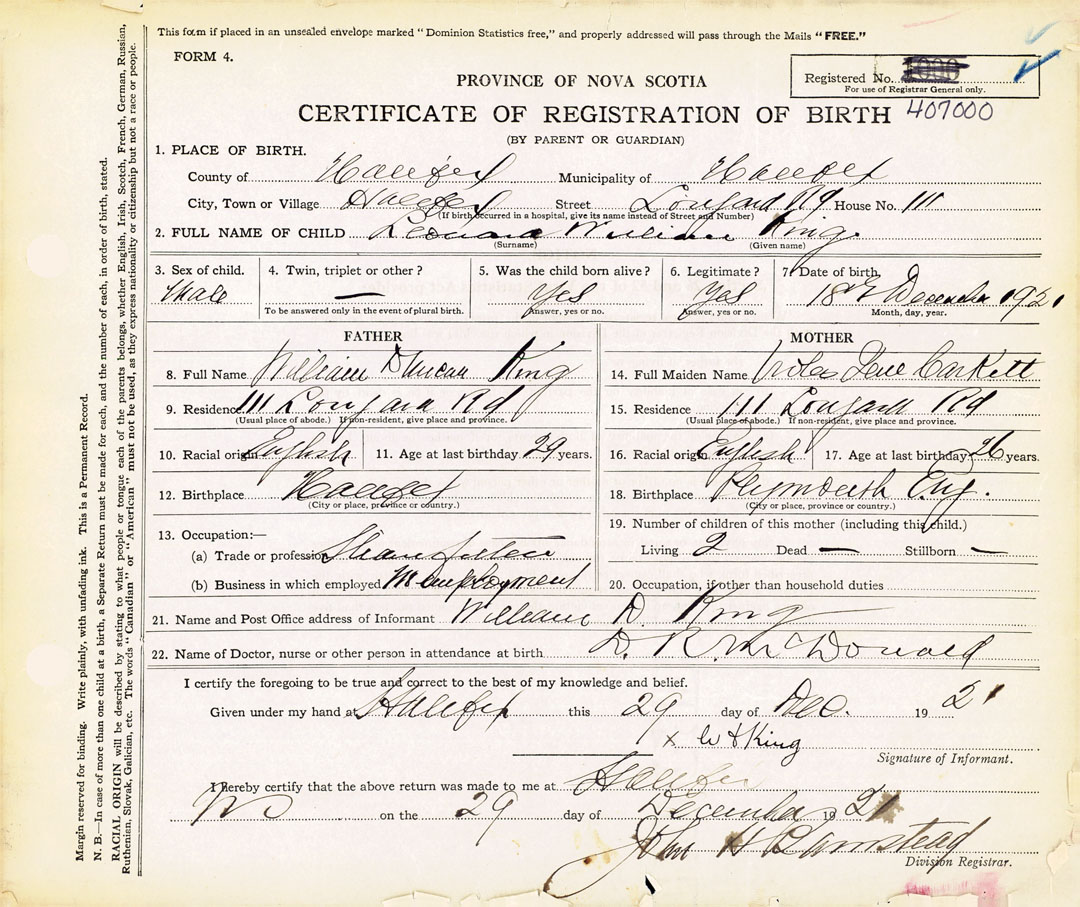 This form if placed in an unsealed envelope marked "Dominion Statistics free," and properly addressed will pass through the Mails "FREE."
FORM 4.
Registered No.
For use of Registrar General only.
PROVINCE OF NOVA SCOTIA
CERTIFICATE OF REGISTRATION OF BIRTH 407000
(BY PARENT OR GUARDIAN)
1. PLACE OF BIRTH.
County of Halifax Municipality of Halifax
City, Town or Village Halifax Street Longard Rd House No. 111
(If birth occurred in a hospital, give its name instead of Street and Number)
2. FULL NAME OF CHILD Leonard William King
(Surname) (Given name)
3. Sex of child. Male
4. Twin, triplet or other? —
To be answered only in the event of plural birth.
5. Was the child born alive? Yes
Answer, yes or no.
6. Legitimate? Yes
Answer, yes or no.
7. Date of birth. 18 December 1921
Month, day, year.
FATHER
8. Full Name William Duncan King
9. Residence 111 Longard Rd
(Usual place of abode.) If non-resident, give place and province.
10. Racial origin English 11. Age at last birthday 29 years.
12. Birthplace Halifax
(City or place, province or country.)
13. Occupation:—
(a) Trade or profession
(b) Business in which employed employment
MOTHER
14. Full Maiden Name
15. Residence 111 Longard Rd
(Usual place of abode.) If non-resident, give place and province.
16. Racial origin English 17. Age at last birthday 26 years.
18. Birthplace Plymouth Eng.
(City or place, province or country.)
19. Number of children of this mother (including this child.)
Living 2 Dead — Stillborn —
20. Occupation, if other than household duties
21. Name and Post Office address of Informant William D. King
22. Name of Doctor, nurse or other person in attendance at birth D. R. McDonald
I certify the foregoing to be true and correct to the best of my knowledge and belief.
Given under my hand at Halifax this 29 day of Dec. 1921
x W D King
Signature of Informant.
I hereby certify that the above return was made to me at Halifax
NS on the 29 day of December 1921
John H
Division Registrar.
Margin reserved for binding. Write plainly, with unfading ink. This is a Permanent Record.
N. B.—In case of more than one child at a birth, a Separate Return must be made for each, and the number of each, in order of birth, stated.
RACIAL ORIGIN will be described by stating to what people or tongue each of the parents belongs, whether English, Irish, Scotch, French, German, Russian,
Ruthenian, Slovak, Galician, etc. The words "Canadian" or "American" must not be used, as they express nationality or citizenship but not a race or people.